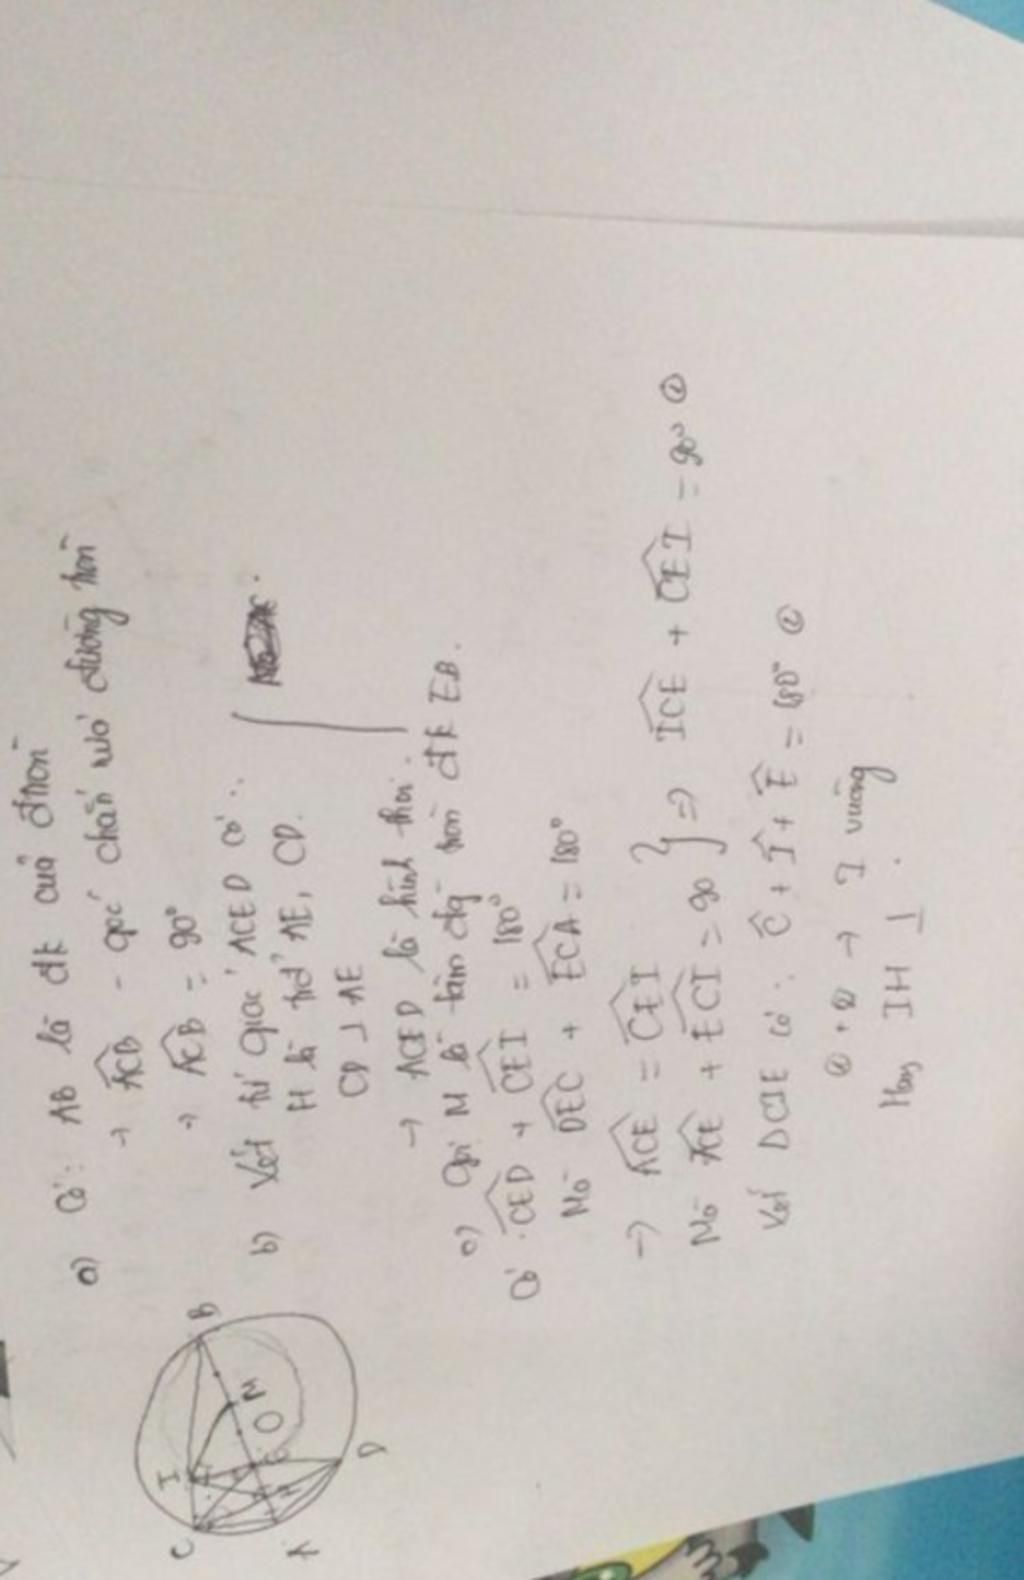 a) Có: AB là đk của đtròn
→ ACB - góc chắn nửa đường tròn
→ ACB = 90°
b) Xét tứ giác ACED có:
H là trđ AE, CD.
CD ⊥ AE
→ ACED là hình thoi.
c) Gọi M là tâm đg tròn đk EB.
Có CED + CEI = 180°
Mà DEC + ECA = 180°
→ ACE = CEI
Mà ACE + ECI = 90 } => ICE + CEI = 90° ①
Xét DCIE có: C + I + E = 180° ②
① + ② → I vuông
Hay IH ⊥ .
C
I
B
M
O
E
H
A
D